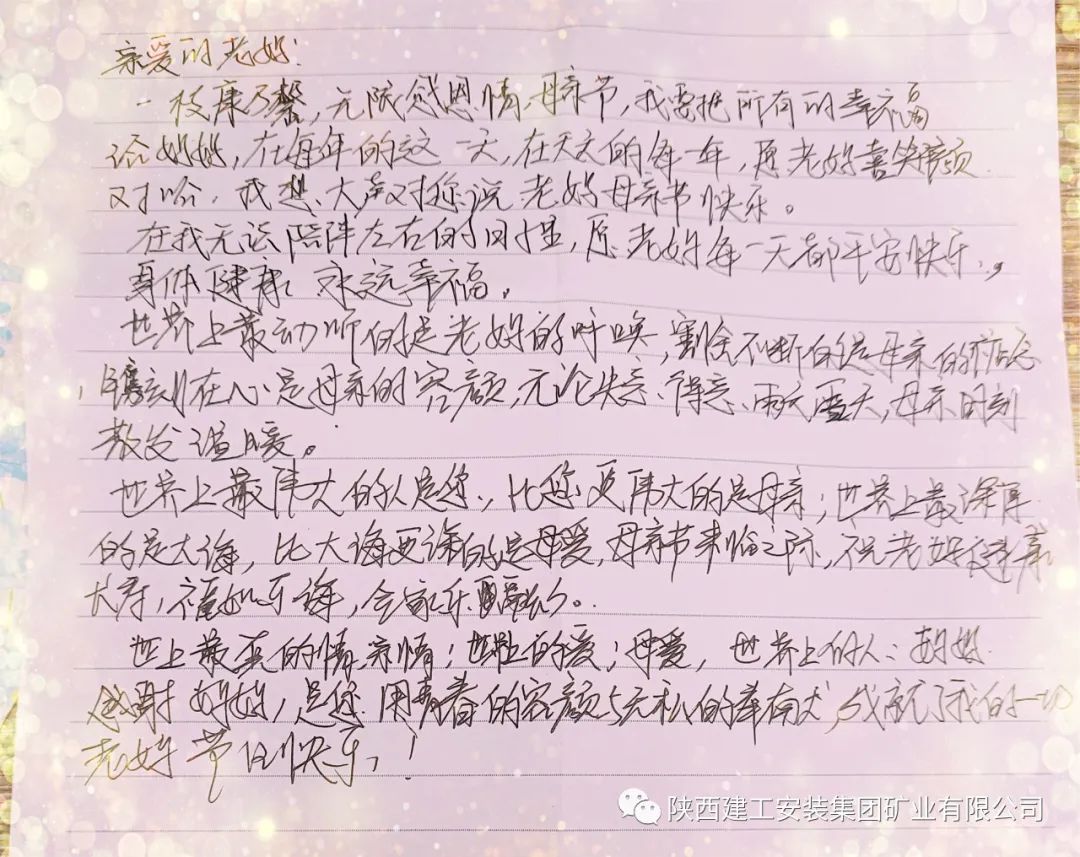 亲爱的老妈:
一枝康乃馨,无限感恩情,母亲节,我要把所有的幸福
给妈妈,在每年的这一天,在天天的每一年,愿老妈喜笑颜
对哈,我想大声对您说老妈母亲节快乐。
在我无法陪伴左右的日子里,愿老妈每一天都平安快乐,
身体健康 永远幸福。
世界上最动听的是老妈的呼唤,割舍不断的是母亲的
,镌刻在心是母亲的容颜,无论失意、得意、雨天雪天,母亲时刻
散发温暖。
世界上最伟大的人是您,比您更伟大的是母亲;世界上最深厚
的是大海,比大海更深的是母爱,母亲节来临之际,祝老妈健康
长寿,福如东海,全家乐融融。
世上最真的情:亲情;世上的爱:母爱,世界上的人:妈妈
感谢妈妈,是您用青春的容颜与无私的奉献,成就了我的一切
老妈节日快乐!
陕西建工安装集团矿业有限公司